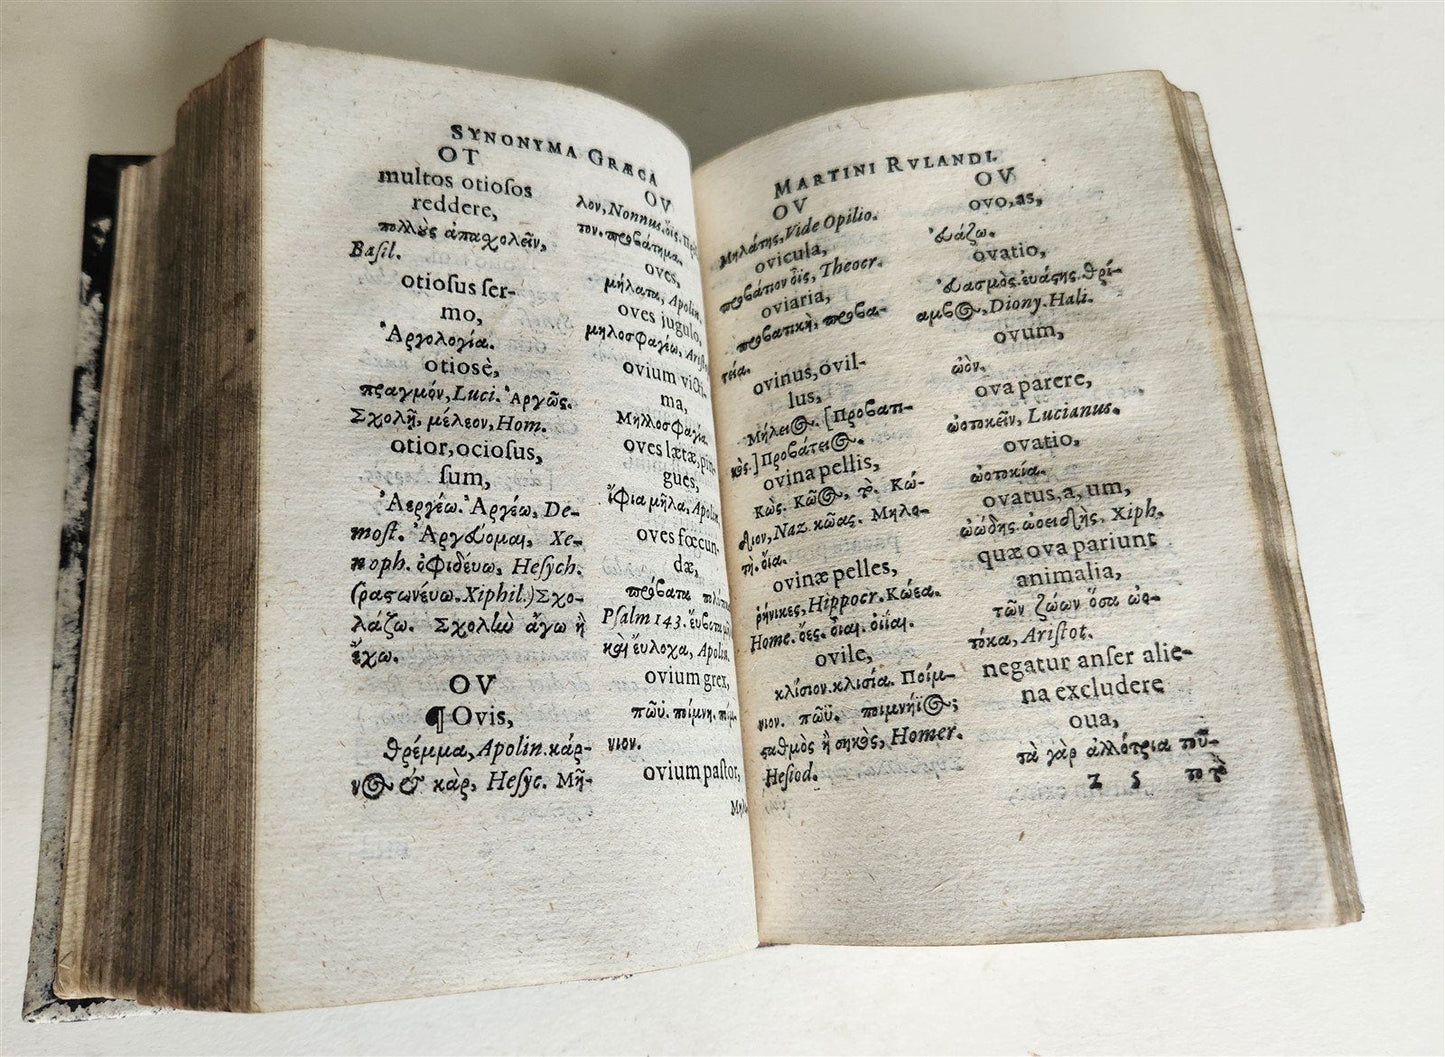 SYNONYMA GRÆCA
OT
multos otioſos
reddere,
πολλοὺς ἀπασχολεῖν,
Baſil.
otioſus ſer-
mo,
Ἀργολογία.
otiosè,
πραγμόν, Luci. Ἀργῶς.
Σχολῇ, μέλεον, Hom.
otior, ocioſus,
ſum,
Ἀεργέω. Ἀργέω, De-
moſt. Ἀργεύομαι, Xe-
noph. ὀφιδεύω, Heſych.
(ραστωνεύω. Xiphil.) Σχο-
λάζω. Σχολὴν ἄγω ἢ
ἔχω.
OV
¶ Ovis,
θρέμμα, Apolin. κάρ-
νος & κὰρ, Heſyc. Μῆ-
OV
λον, Nonnus. ὄϊς.
τον. προβάτημα.
oves,
μήλατα, Apolin.
oves jugulo,
μηλοσφαγέω, Ariſt
ovium victi-
ma,
Μηλοσφαγία.
oves lætæ, pin-
gues,
ἴφια μῆλα, Apolin.
oves fœcun-
dæ,
πρόβατα
Pſalm 143. εὔβοτα
καὶ εὔλοχα, Apolin.
ovium grex,
πῶϋ. ποίμνη. ποίμ-
νιον.
ovium paſtor,
MARTINI RVLANDI.
OV
Μηλάτης, Vide Opilio.
ovicula,
προβάτιον ὄϊς, Theocr.
oviaria,
προβατικὴ, προβα-
τεία.
ovinus, ovil-
lus,
Μήλειος. [Προβατι-
κὸς.] Προβάτειος.
ovina pellis,
Κὼς. Κῶος, τὸ. Κώ-
διον, Naz. κῶας. Μηλο-
τὴ. ὄια.
ovinæ pelles,
ῥήνικες, Hippocr. Κώεα.
Home. ὄες. ὄϊαι. ὀΐϊαι.
ovile,
κλίσιον. κλισία. Ποίμ-
νιον. πῶϋ. ποιμνήϊος;
σταθμὸς ἢ σηκὸς, Homer.
Heſiod.
OV
ovo, as,
Εὐάζω.
ovatio,
Εὐασμὸς. εὐάστης. θρί-
αμβος, Diony. Hali.
ovum,
ὠὸν.
ova parere,
ὠοτοκεῖν, Lucianus.
ovatio,
ὠοτοκία.
ovatus, a, um,
ὠώδης. ὠοειδὴς. Xiph.
quæ ova pariunt
animalia,
τῶν ζώων ὅσα ὠο-
τόκα, Ariſtot.
negatur anſer alie-
na excludere
oua,
τὰ γὰρ ἀλλότρια τοῦ-
Z 5 το τὸ